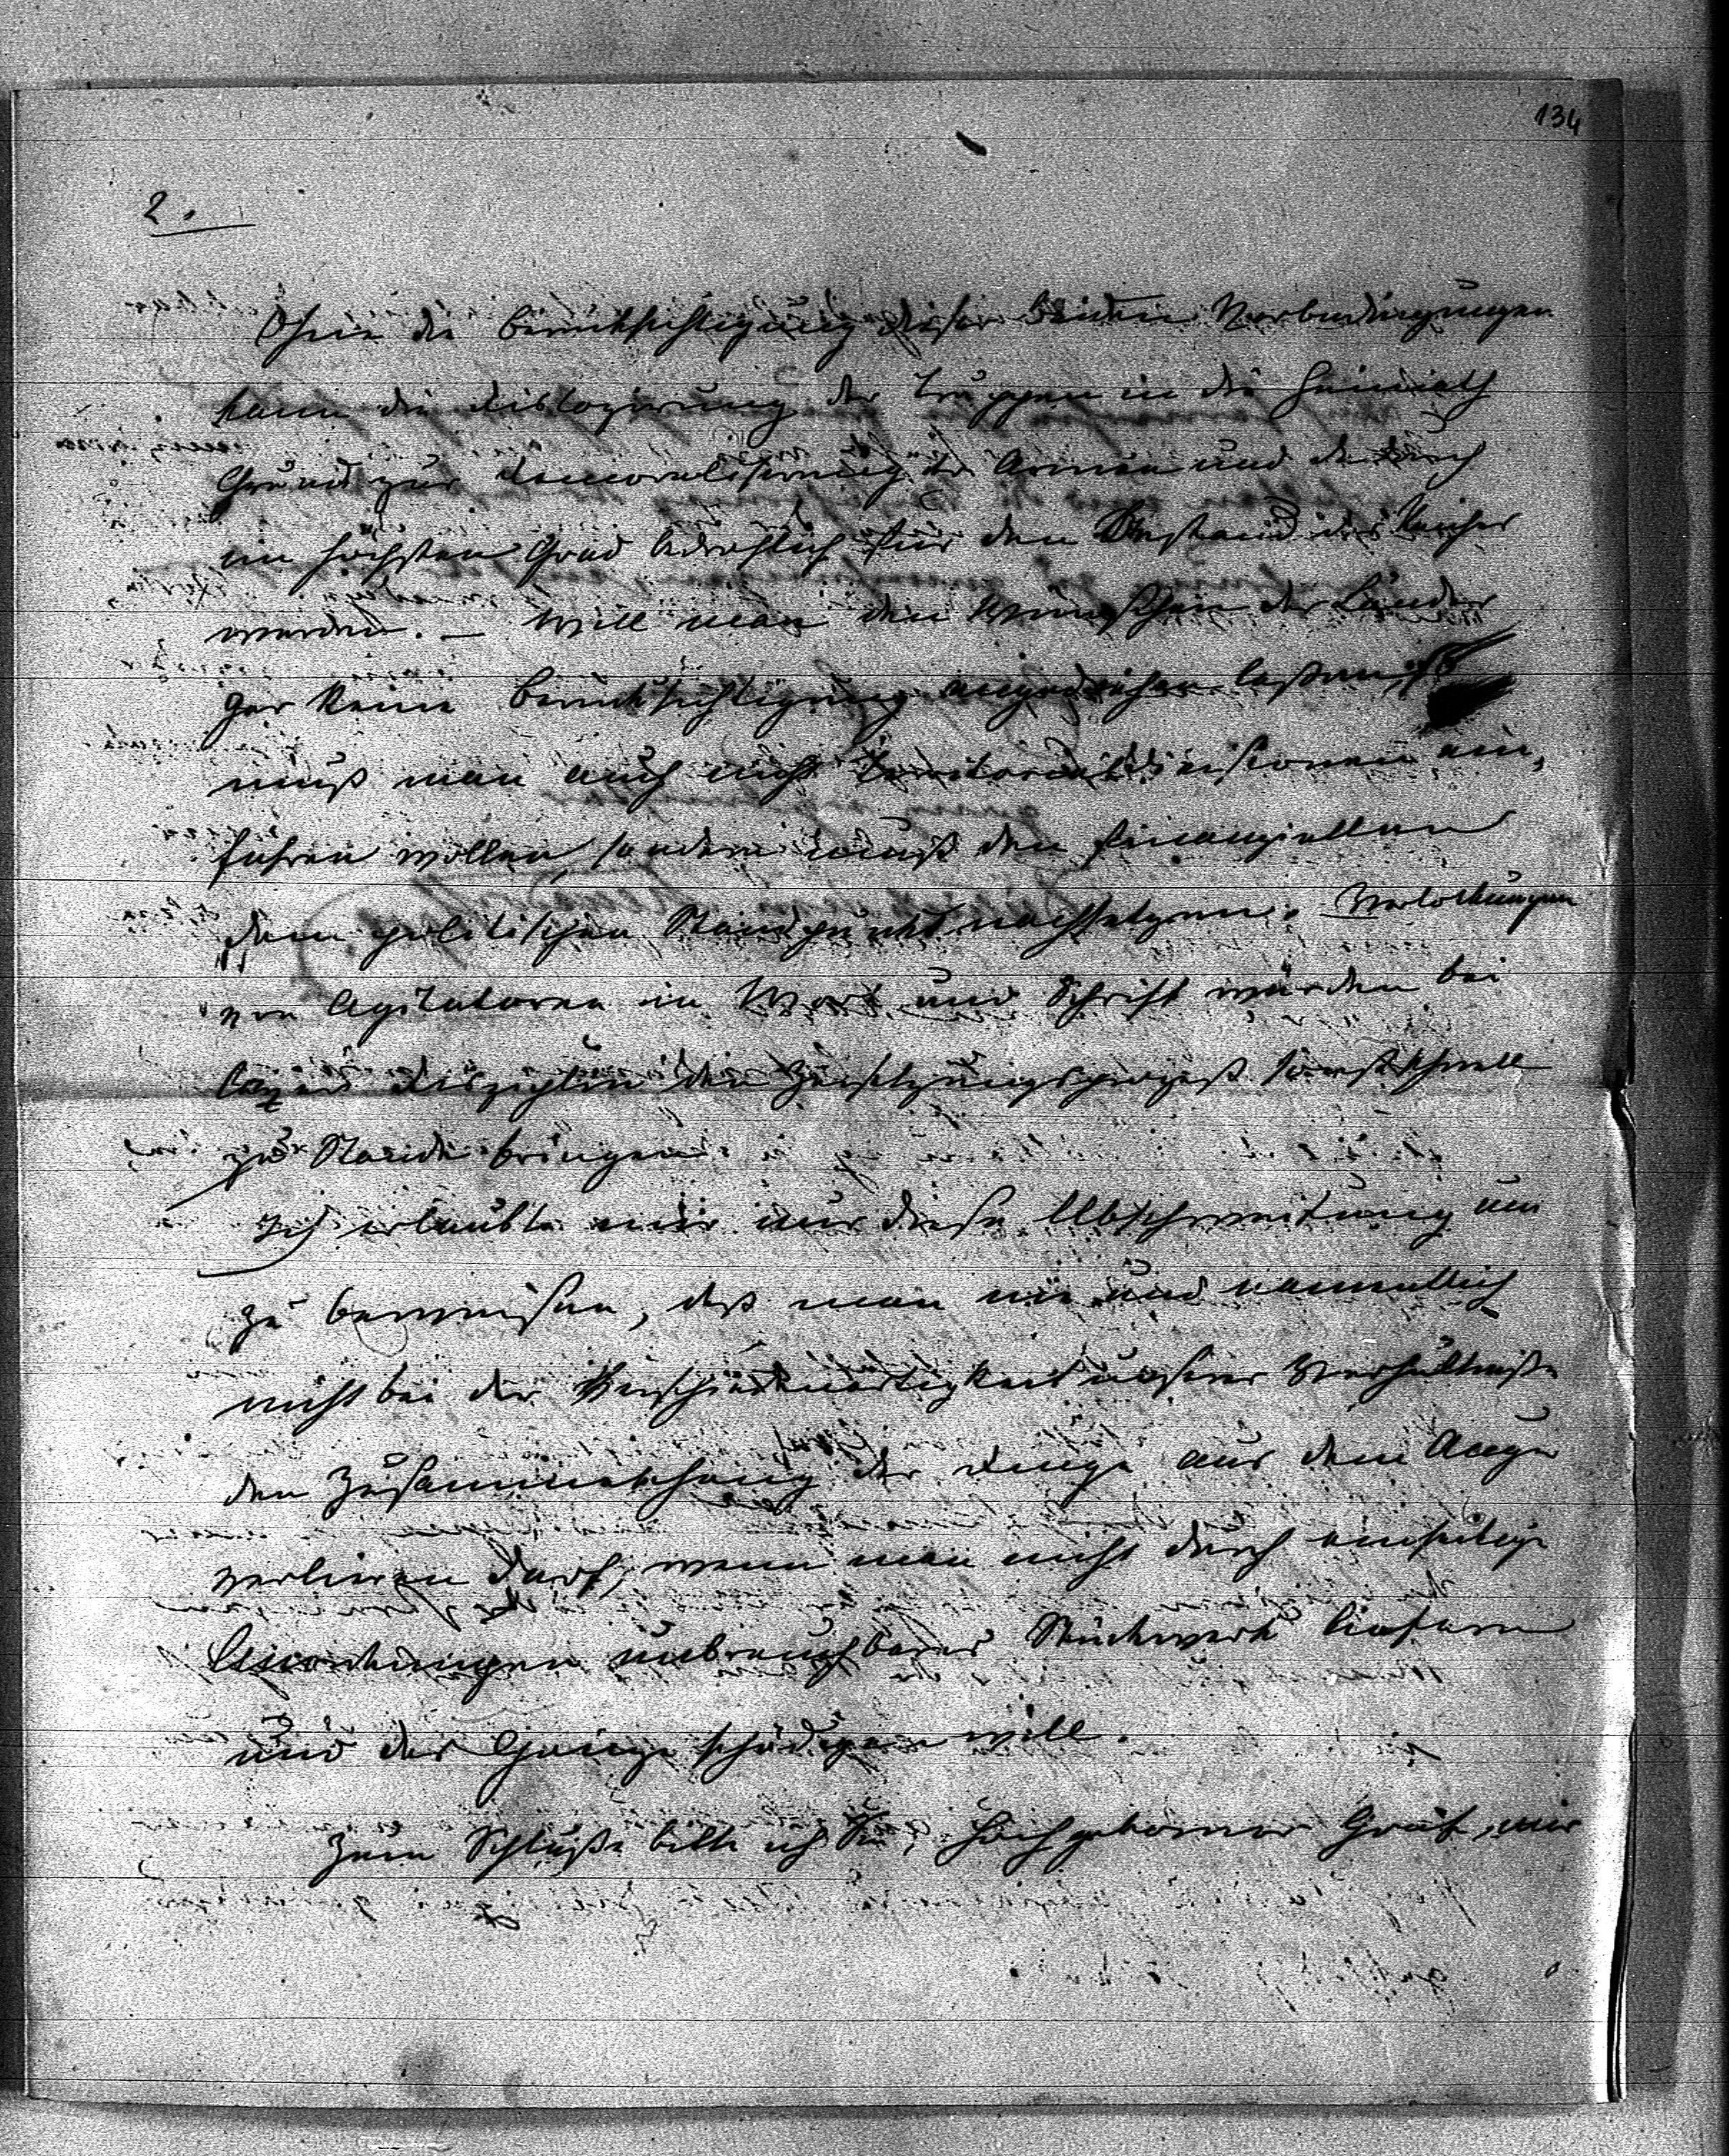 134
2.
Ohne die Berücksichtigung dieser beiden Vorbedingungen
kann die Dislozirung der Truppen in die Heimath
Grund zur Demoralisirung der Armee und dadurch
im höchsten Grad bedrohlich für den Bestand des Reiches
werden. – Will man den Wünschen der Länder
gar keine Berücksichtigung angedeihen laßen, so
muß man auch nicht Territorialdivisionen ein,
führen wollen, sondern muß den finanziellen
dem politischen Standpunkt nachsetzen. Verlockungen
von Agitatoren in Wort und Schrift würden bei
laxer Disziplin den Zersetzungsprozeß sonst schnell
zu Stande bringen.
Ich erlaubte mir nur diese Abschweifung um
zu beweisen, daß man nie und namentlich
nicht bei der Verschiedenartigkeit unserer Verhältniße
den Zusammenhang der Dinge aus dem Auge
verlieren darf, wenn man nicht durch einseitige
unbrauchbares Stückwerk liefern
und das Ganze schädigen will.
Zum Schluße bitte ich Sie, hochgeborner Graf, mir